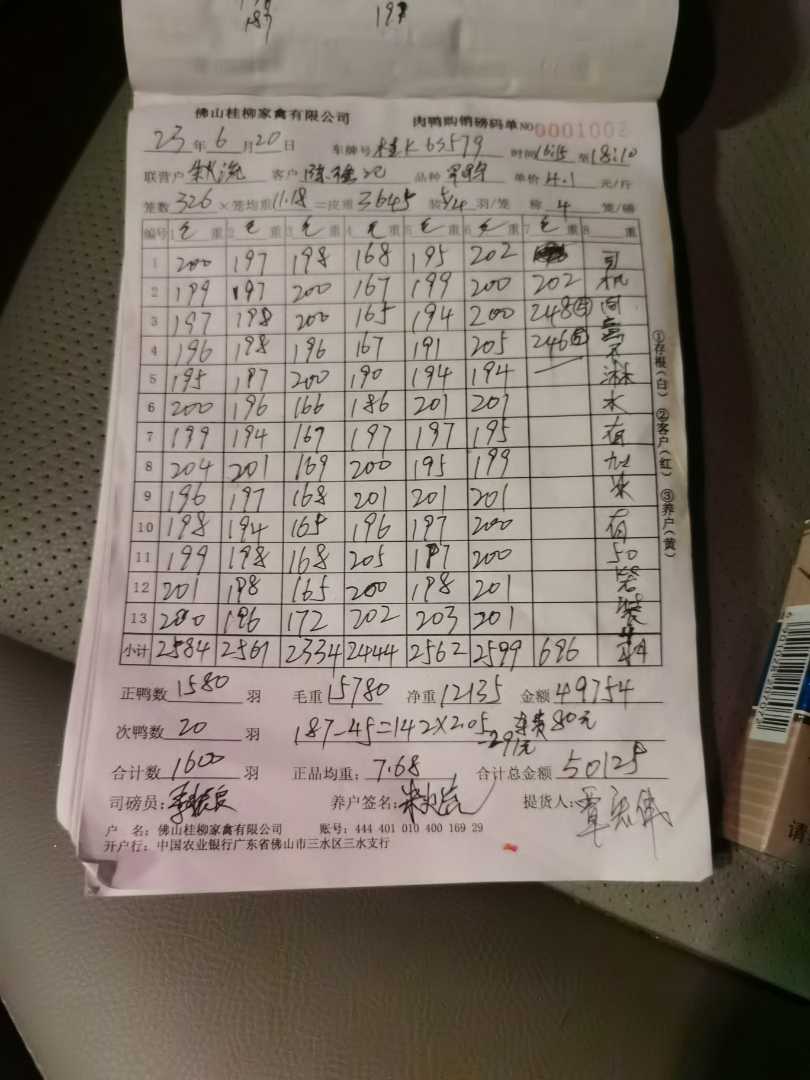 187 197
佛山桂柳家禽有限公司 肉鸭购销磅码单NO 0001002
23年6月20日 车牌号 桂K63579 时间16:15至18:10
联营户 客户 品种 单价4.1元/斤
笼数326×笼均重11.18=皮重3645 装5/4羽/笼 称4笼/磅
编号 1毛重 2毛重 3毛重 4毛重 5毛重 6毛重 7毛重 8 重
1 200 197 198 168 195 202 司
2 199 197 200 167 199 200 202 机
3 197 198 200 165 194 200 248⑤ 同
4 196 198 196 167 191 205 246⑤ 意不
5 195 197 200 190 194 194 淋
6 200 196 166 186 201 201 水
7 199 194 167 197 197 195 有
8 204 201 169 200 195 199 加
9 196 197 168 201 201 201 冰
10 198 194 165 196 197 200 有
11 199 198 168 205 197 200 50
12 201 198 165 200 198 201
13 200 196 172 202 203 201 装
小计 2584 2561 2334 2444 2562 2599 696
正鸭数1580羽 毛重15780 净重12135 金额49754
次鸭数20羽 187-45=142×2.05 80元
=291元
合计数1600羽 正品均重:7.68 合计总金额50125
司磅员: 养户签名: 提货人:
户 名:佛山桂柳家禽有限公司 账号:444 401 010 400 169 29
开户行:中国农业银行广东省佛山市三水区三水支行
①存根(白) ②客户(红) ③养户(黄)
请